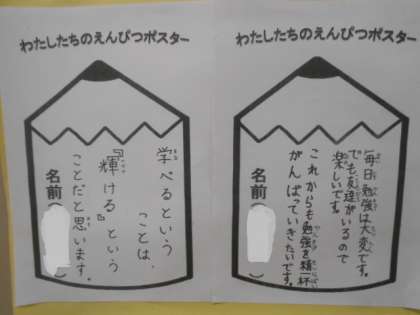 わたしたちのえんぴつポスター
学べるという
ことは、
『輝ける』という
ことだと思います。
名前（　）
わたしたちのえんぴつポスター
毎日勉強は大変です。
でも友達がいるので
楽しいです。
これからも勉強を精一杯
がんばっていきたいです。
名前（　）